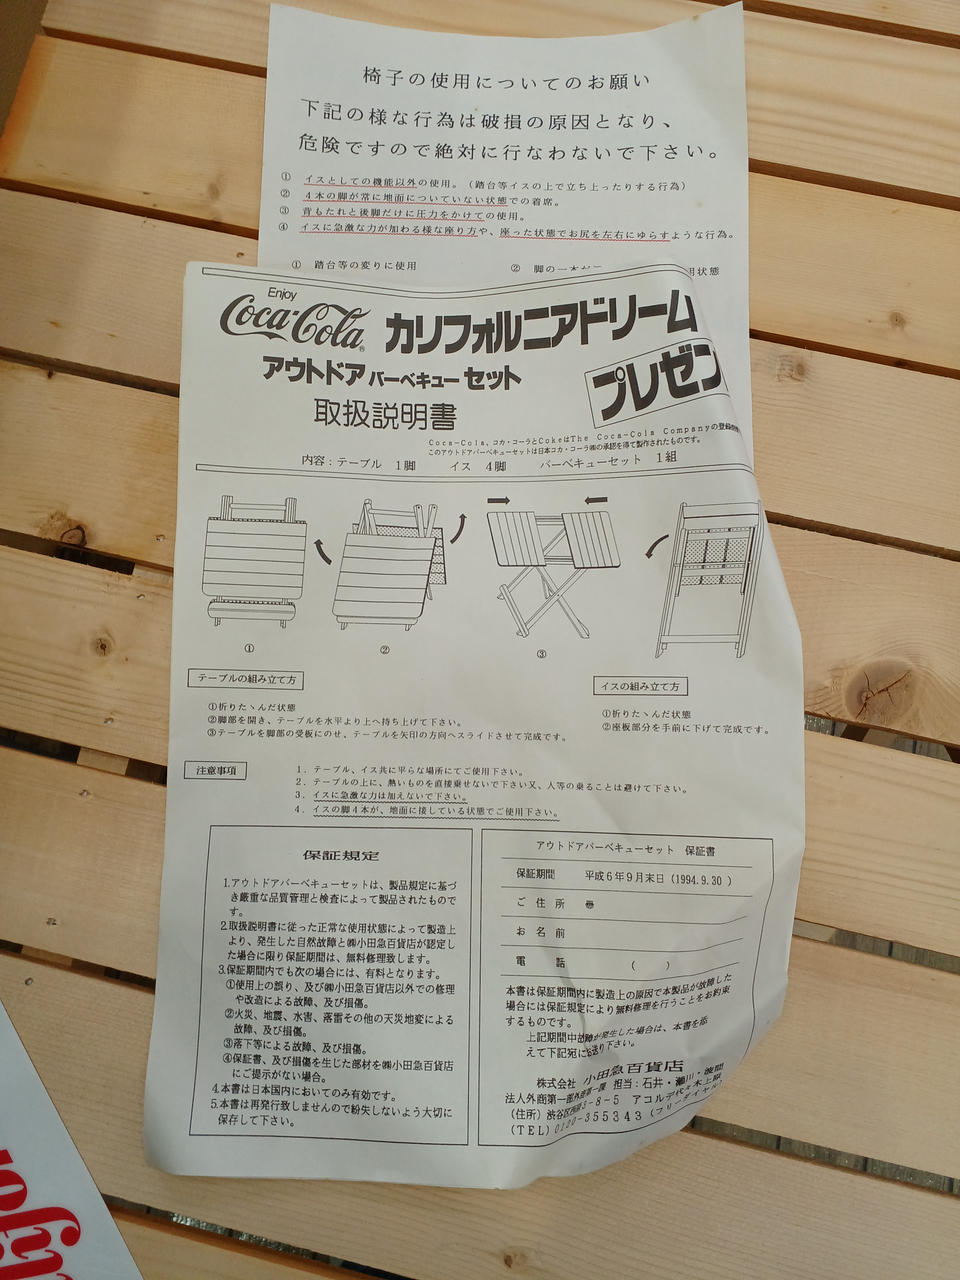 椅子の使用についてのお願い
下記の様な行為は破損の原因となり、
危険ですので絶対に行なわないで下さい。
① イスとしての機能以外の使用。（踏台等イスの上で立ち上ったりする行為）
② 4本の脚が常に地面についていない状態での着席。
③ 背もたれと後脚だけに圧力をかけての使用。
④ イスに急激な力が加わる様な座り方や、座った状態でお尻を左右にゆらすような行為。
① 踏台等の変りに使用
② 脚の一本が
用状態
Enjoy
Coca-Cola
®
カリフォルニアドリーム
アウトドアバーベキューセット
プレゼン
取扱説明書
Coca-Cola、コカ・コーラとCokeはThe Coca-Cola Companyの登録商標
このアウトドアバーベキューセットは日本コカ・コーラ㈱の承認を得て製作されたものです。
内容：テーブル 1脚 イス 4脚 バーベキューセット 1組
①
②
③
テーブルの組み立て方
①折りたゝんだ状態
②脚部を開き、テーブルを水平より上へ持ち上げて下さい。
③テーブルを脚部の受板にのせ、テーブルを矢印の方向へスライドさせて完成です。
イスの組み立て方
①折りたゝんだ状態
②座板部分を手前に下げて完成です。
注意事項
1．テーブル、イス共に平らな場所にてご使用下さい。
2．テーブルの上に、熱いものを直接乗せないで下さい又、人等の乗ることは避けて下さい。
3．イスに急激な力は加えないで下さい。
4．イスの脚4本が、地面に接している状態でご使用下さい。
保証規定
1.アウトドアバーベキューセットは、製品規定に基づ
き厳重な品質管理と検査によって製品されたもので
す。
2.取扱説明書に従った正常な使用状態によって製造上
より、発生した自然故障と㈱小田急百貨店が認定し
た場合に限り保証期間は、無料修理致します。
3.保証期間内でも次の場合には、有料となります。
①使用上の誤り、及び㈱小田急百貨店以外での修理
や改造による故障、及び損傷。
②火災、地震、水害、落雷その他の天災地変による
故障、及び損傷。
③落下等による故障、及び損傷。
④保証書、及び損傷を生じた部材を㈱小田急百貨店
にご提示がない場合。
4.本書は日本国内においてのみ有効です。
5.本書は再発行致しませんので紛失しないよう大切に
保存して下さい。
アウトドアバーベキューセット 保証書
保証期間 平成6年9月末日（1994.9.30）
ご住所 〠
お名前
電話 （ ）
本書は保証期間内に製造上の原因で本製品が故障した
場合には保証規定により無料修理を行うことをお約束
するものです。
上記期間中故障が発生した場合は、本書を添
えて下記宛にお送り下さい。
株式会社 小田急百貨店
法人外商第一部外商第一課 担当：石井・瀬川・渡間
（住所）渋谷区西原3-8-5 アコルデ代々木上原
（TEL）0120-355343（フリーダイヤル）